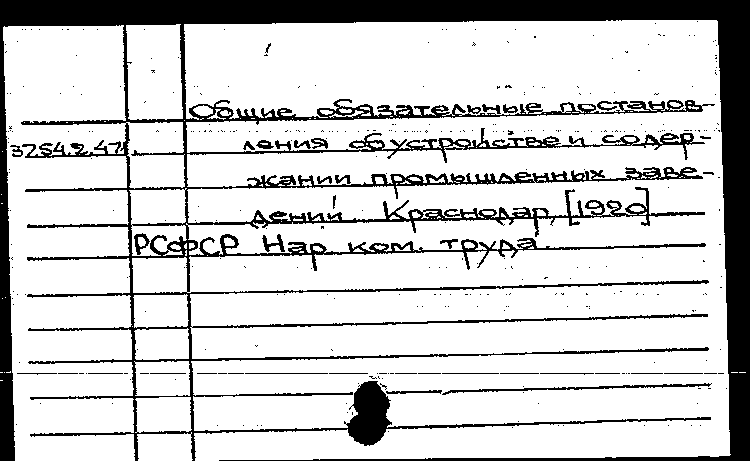 Общие обязательные постанов-
37.54.2.471. ления об устройстве и содер-
жании промышленных заве-
дений. Краснодар, [1920]
РСФСР Нар. ком. труда.